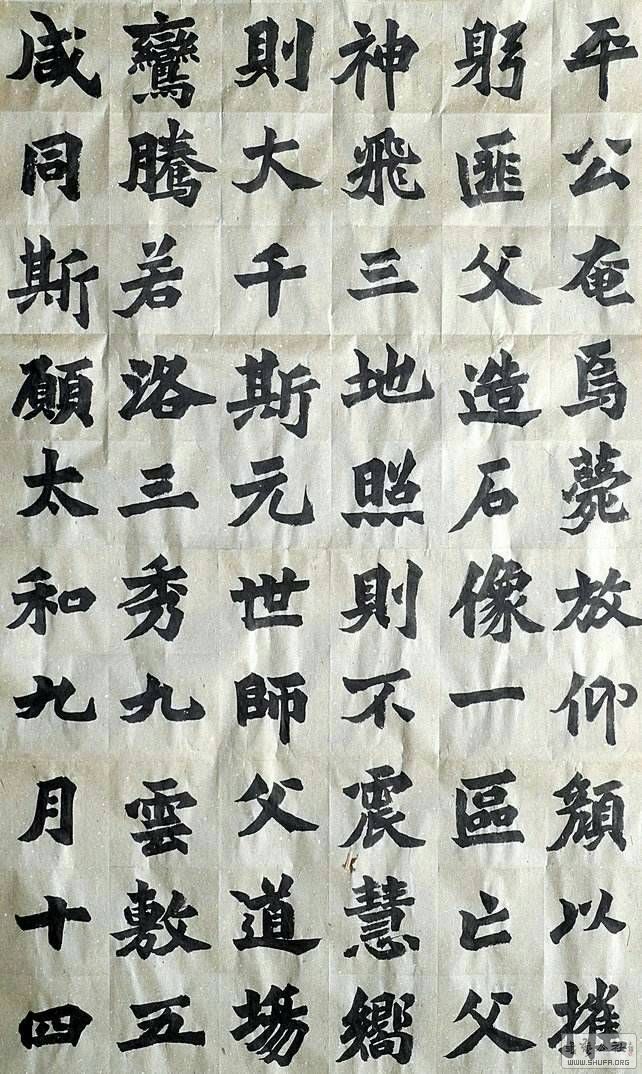 平公奄焉薨放仰顏以摧
躬匪父造石像一區亡父
神飛三地照則不震慧嚮
則大千斯元世師父道場
鸞騰若洛三秀九雲敷五
咸同斯願太和九月十四
WWW.SHUFA.ORG